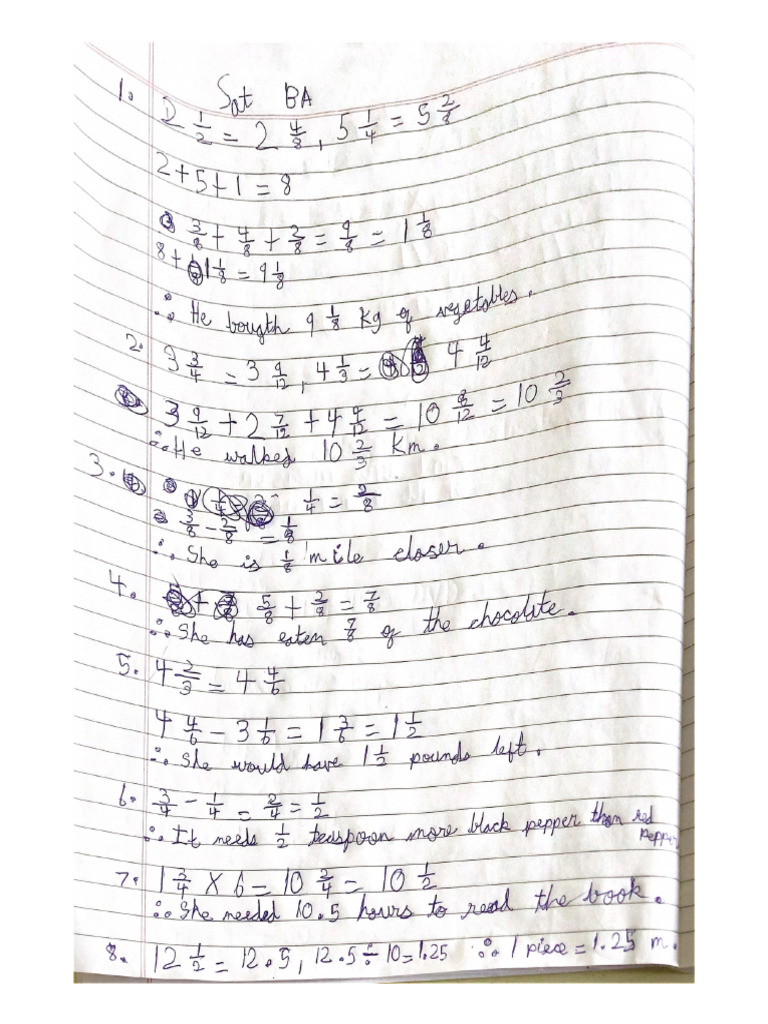 Sat BA
1. 2 1/2 = 2 4/8, 5 1/4 = 5 2/8
2+5+1 = 8
3/8 + 4/8 + 2/8 = 9/8 = 1 1/8
8 + 1 1/8 = 9 1/8
∴ He bougth 9 1/8 Kg of vegetables.
2. 3 3/4 = 3 9/12, 4 1/3 = 4 4/12
3 9/12 + 2 7/12 + 4 4/12 = 10 8/12 = 10 2/3
∴ He walked 10 2/3 Km.
3. 1/4 = 2/8
3/8 - 2/8 = 1/8
∴ She is 1/8 mile closer.
4. 5/8 + 2/8 = 7/8
∴ She has eaten 7/8 of the chocolite.
5. 4 2/3 = 4 4/6
4 4/6 - 3 1/6 = 1 3/6 = 1 1/2
∴ She would have 1 1/2 pounds left.
6. 3/4 - 1/4 = 2/4 = 1/2
∴ It needs 1/2 teaspoon more black pepper than red pepper
7. 1 3/4 X 6 = 10 2/4 = 10 1/2
∴ She needed 10.5 hours to read the book.
8. 12 1/2 = 12.5, 12.5 ÷ 10 = 1.25 ∴ 1 piece = 1.25 m.